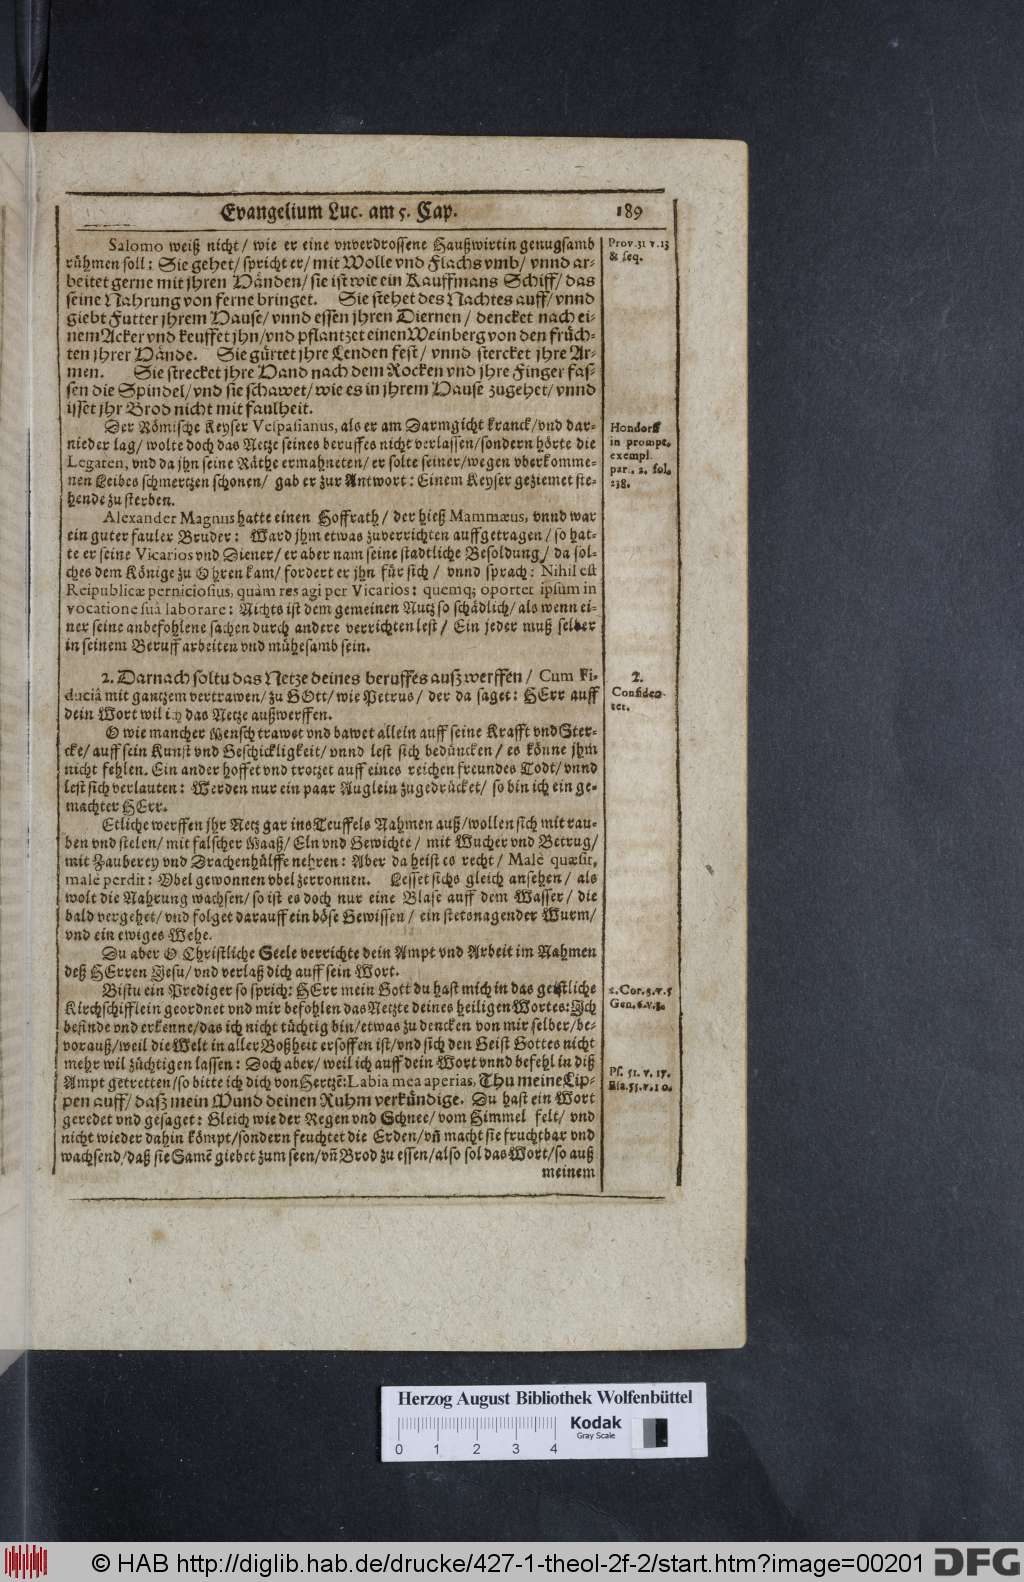 Evangelium Luc. am 5. Cap. 189
Salomo weiß nicht / wie er eine vnverdrossene Haußwirtin genugsamb
rühmen soll: Sie gehet / spricht er / mit Wolle vnd Flachs vmb / vnnd ar-
beitet gerne mit jhren Händen / sie ist wie ein Kauffmans Schiff / das
seine Nahrung von ferne bringet. Sie stehet des Nachtes auff / vnnd
giebt Futter jhrem Hause / vnnd essen jhren Diernen / dencket nach ei-
nem Acker vnd keuffet jhn / vnd pflantzet einen Weinberg von den früch-
ten jhrer Hände. Sie gürtet jhre Lenden fest / vnnd stercket jhre Ar-
men. Sie strecket jhre Hand nach dem Rocken vnd jhre Finger fas-
sen die Spindel / vnd sie schawet / wie es in jhrem Hause zugehet / vnnd
isset jhr Brod nicht mit faulheit.
Prov. 31 v. 13
& seq.
Der Römische Keyser Vespasianus, als er am Darmgicht kranck / vnd dar-
nieder lag / wolte doch das Netze seines beruffes nicht verlassen / sondern hörte die
Legaten, vnd da jhn seine Räthe ermahneten / er solte seiner / wegen vberkomme-
nen Leibes schmertzen schonen / gab er zur Antwort: Einem Keyser geziemet ste-
hende zu sterben.
Hondorff
in prompt.
exempl.
par. 2. fol.
238.
Alexander Magnus hatte einen Hoffrath / der hieß Mammæus, vnnd war
ein guter fauler Bruder: Ward jhm etwas zuverrichten auffgetragen / so hat-
te er seine Vicarios vnd Diener / er aber nam seine stadtliche Besoldung / da sol-
ches dem Könige zu Ohren kam / fordert er jhn für sich / vnnd sprach: Nihil est
Reipublicæ perniciosius, quàm res agi per Vicarios: quemq; oportet ipsum in
vocatione suâ laborare: Nichts ist dem gemeinen Nutz so schädlich / als wenn ei-
ner seine anbefohlene sachen durch andere verrichten lest / Ein jeder muß selber
in seinem Beruff arbeiten vnd mühesamb sein.
2. Darnach soltu das Netze deines beruffes außwerffen / Cum Fi-
duciâ mit gantzem vertrawen / zu GOtt / wie Petrus / der da saget: HErr auff
dein Wort wil ich das Netze außwerffen.
2.
Confiden-
ter.
O wie mancher Mensch trawet vnd bawet allein auff seine Krafft vnd Ster-
cke / auff sein Kunst vnd Geschickligkeit / vnnd lest sich bedüncken / es könne jhm
nicht fehlen. Ein ander hoffet vnd trotzet auff eines reichen freundes Todt / vnnd
lest sich verlauten: Werden nur ein paar Auglein zugedrücket / so bin ich ein ge-
machter HErr.
Etliche werffen jhr Netz gar ins Teuffels Nahmen auß / wollen sich mit rau-
ben vnd stelen / mit falscher Maaß / Eln vnd Gewichte / mit Wucher vnd Betrug /
mit Zauberey vnd Drachenhülffe nehren: Aber da heist es recht / Malè quæsit,
malè perdit: Vbel gewonnen vbel zerronnen. Lesset sichs gleich ansehen / als
wolt die Nahrung wachsen / so ist es doch nur eine Blase auff dem Wasser / die
bald vergehet / vnd folget darauff ein böse Gewissen / ein stetsnagender Wurm /
vnd ein ewiges Wehe.
Du aber O Christliche Seele verrichte dein Ampt vnd Arbeit im Nahmen
deß HErren Jesu / vnd verlaß dich auff sein Wort.
Bistu ein Prediger so sprich: HErr mein Gott du hast mich in das geistliche
Kirchschifflein geordnet vnd mir befohlen das Netzte deines heiligen Wortes: Ich
befinde vnd erkenne / das ich nicht tüchtig bin / etwas zu dencken von mir selber / be-
vorauß / weil die Welt in aller Boßheit ersoffen ist / vnd sich den Geist Gottes nicht
mehr wil züchtigen lassen: Doch aber / weil ich auff dein Wort vnnd befehl in diß
Ampt getretten / so bitte ich dich von Hertzē: Labia mea aperias, Thu meine Lip-
pen auff / daß mein Mund deinen Ruhm verkündige. Du hast ein Wort
geredet vnd gesaget: Gleich wie der Regen vnd Schnee / vom Himmel felt / vnd
nicht wieder dahin kömpt / sondern feuchtet die Erden / vñ macht sie fruchtbar vnd
wachsend / daß sie Samē giebet zum seen / vñ Brod zu essen / also sol das Wort / so auß
meinem
2. Cor. 3. v. 5
Gen. 6. v. 3.
Ps. 51. v. 17.
Esa. 55. v. 10.
Herzog August Bibliothek Wolfenbüttel
Kodak
Gray Scale
0 1 2 3 4
© HAB http://diglib.hab.de/drucke/427-1-theol-2f-2/start.htm?image=00201 DFG